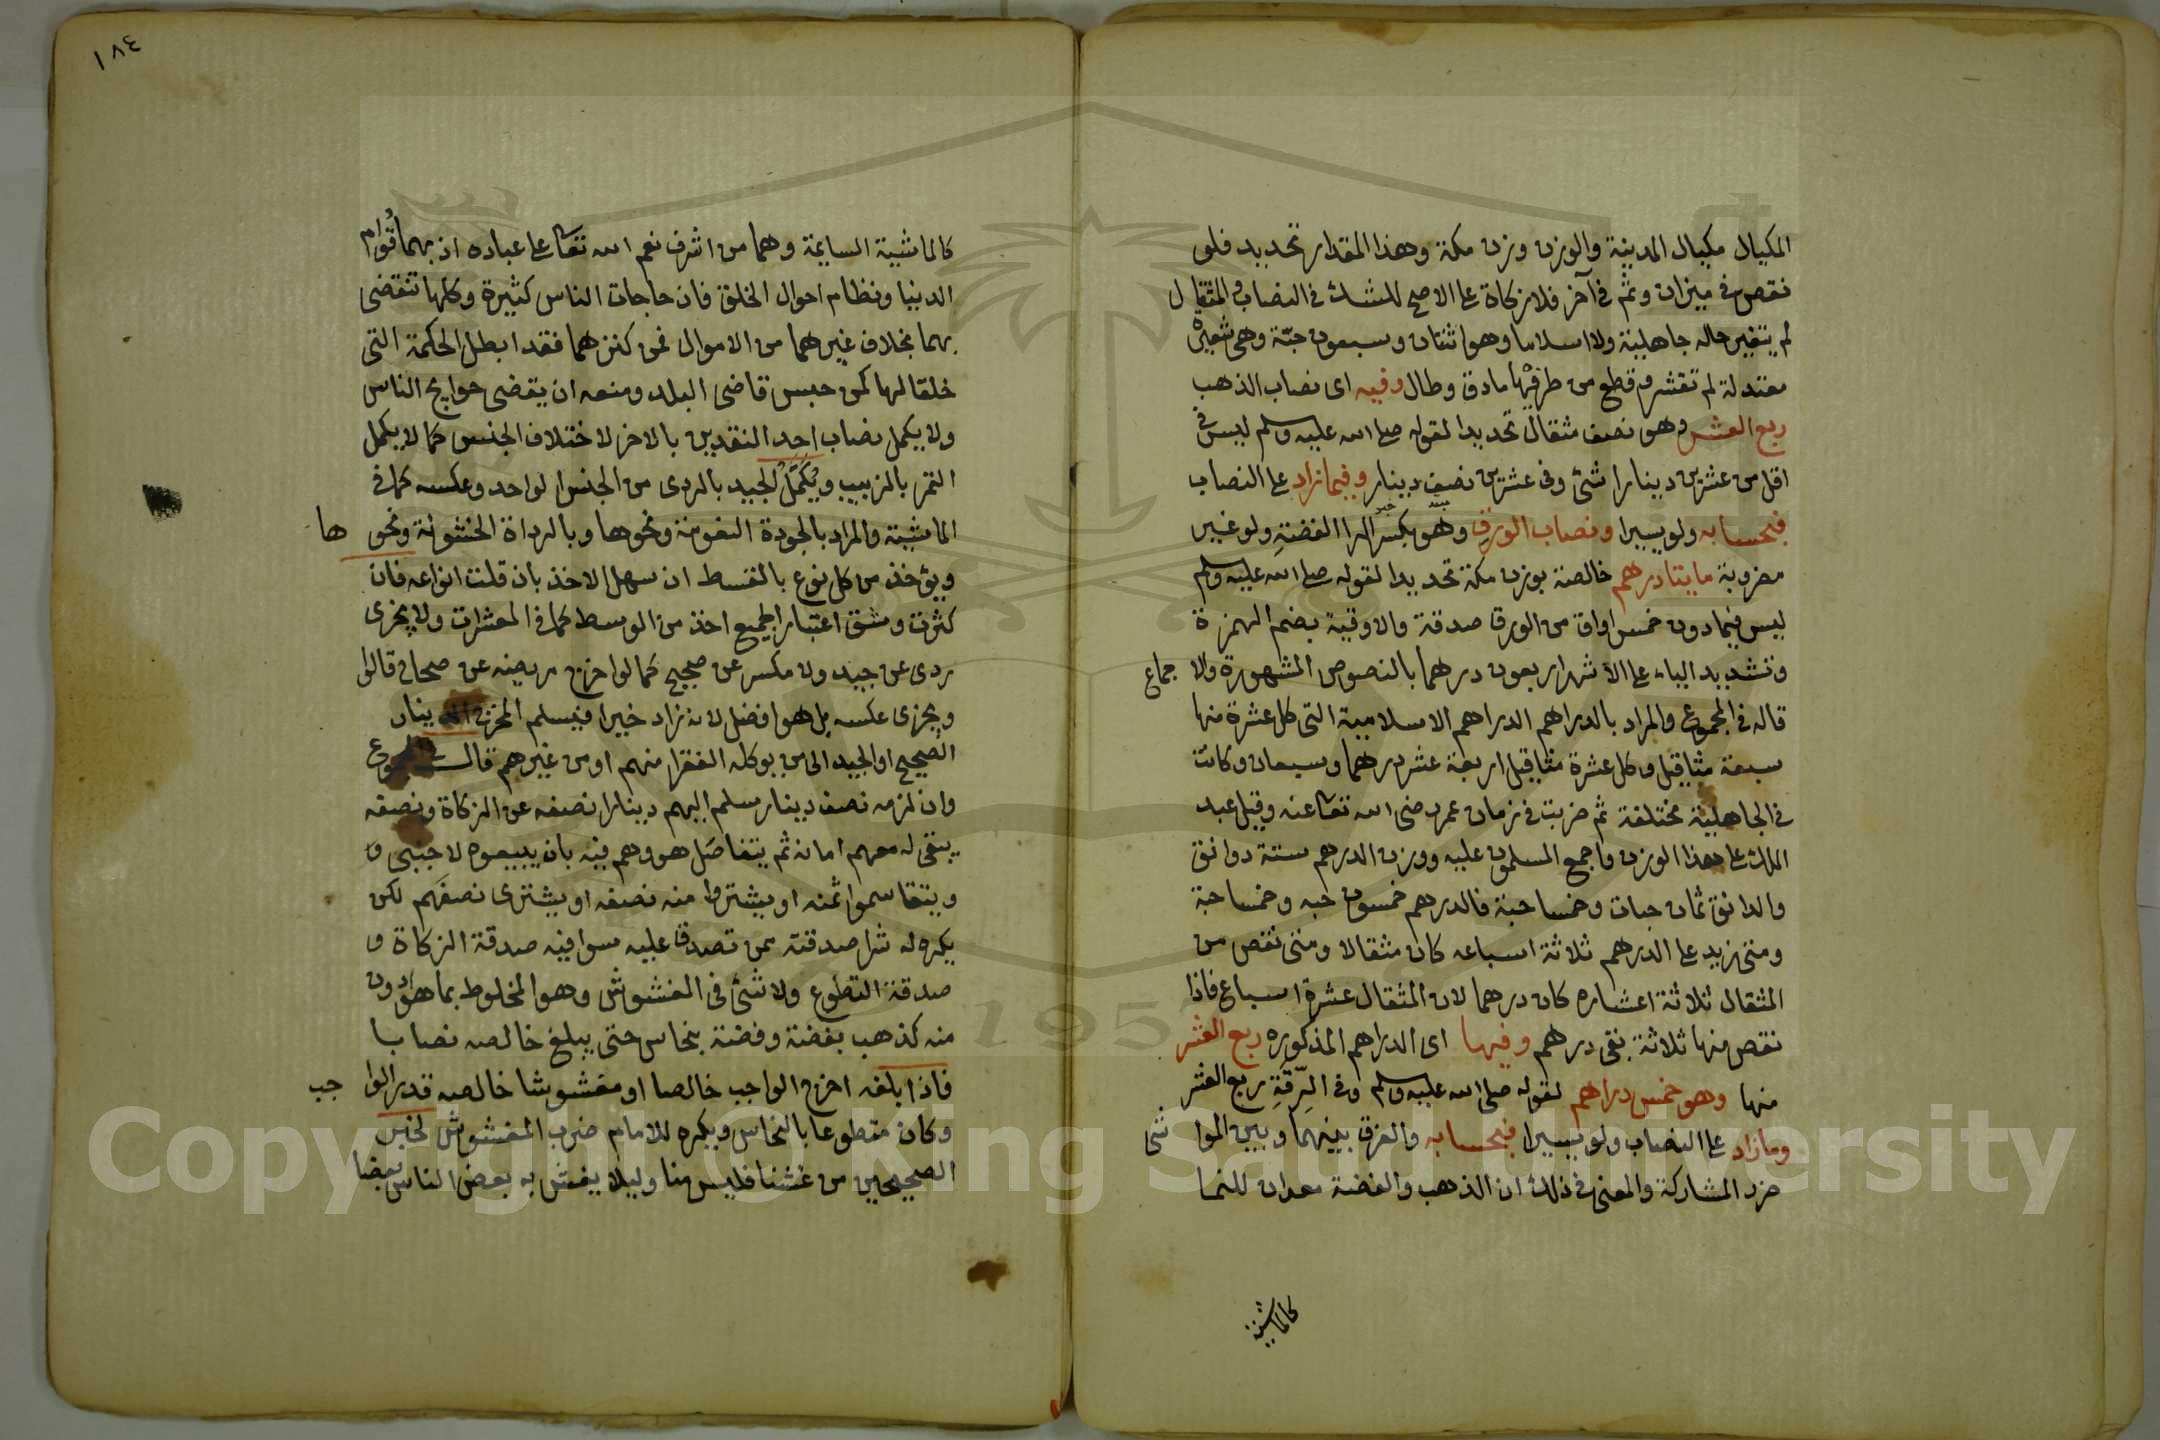 المكيال مكيال المدينة والوزن وزن مكة وهذا المقدار تحديد فلو
نقص في ميزان وتم في آخر فلا زكاة على الاصح للشك في النصاب والمثقال
لم يتغير حاله جاهلية ولا اسلاما وهو اثنتان وسبعون حبّة وهي شعيرة
معتدلة لم تقشر وقطع من طرفيها ما دق وطال وفيه اى نصاب الذهب
ربع العشر وهو نصف مثقال تحديدا لقوله صلى الله عليه وسلم ليس في
اقل من عشرين دينارا شئ وفى عشرين نصف دينار وفيما زاد على النصاب
فبحسابه ولو يسيرا ونصاب الورق وهو بكسر الرا الفضة ولو غير
مضروبة مايتا درهم خالصة بوزن مكة تحديدا لقوله صلى الله عليه وسلم
ليس فيما دون خمس اواق من الورق صدقة والاوقية بضم الهمزة
وتشديد الياء على الاشهر اربعون درهما بالنصوص المشهورة والا جماع
قاله في المجموع والمراد بالدراهم الدراهم الاسلامية التى كل عشرة منها
سبعة مثاقيل وكل عشرة مثاقيل اربعة عشر درهما وسبعان وكانت
في الجاهلية مختلفة ثم ضربت في زمان عمر رضى الله تعا عنه وقيل عبد
الملك على هذا الوزن واجمع المسلمون عليه ووزن الدرهم ستة دوانق
والدانق ثمان حبات وخمسا حبة فالدرهم خمسون حبه وخمسا حبة
ومتى زيد على الدرهم ثلاثة اسباعه كان مثقالا ومتى نقص من
المثقال ثلاثة اعشاره كان درهما لان المثقال عشرة اسباع فاذا
نقص منها ثلاثة بقى درهم وفيها اى الدراهم المذكوره ربع العشر
منها وهو خمس دراهم لقوله صلى الله عليه وسلم وفى الرِّقَةِ ربع العشر
وما زاد على النصاب ولو يسيرا فبحسابه والفرق بينهما وبين الموا شى
ضرر المشاركة والمعنى في ذلك ان الذهب والفضة معدان للنما
كالماشية
١٨٤
كالماشية السايمة وهما من اشرف نعم الله تعا على عباده اذ بهما قُوام
الدنيا ونظام احوال الخلق فان حاجات الناس كثيرة وكلها تنقضى
بهما بخلاف غيرهما من الاموال فمن كنزهما فقد ابطل الحكمة التى
خلقا لها كمن حبس قاضى البلد ومنعه ان يقضى حوايج الناس
ولا يكمل نصاب احد النقدين بالاخر لاختلاف الجنس كما لا يكمل
التمر بالزبيب ويُكمَّلُ الجيد بالردى من الجنس الواحد وعكسه كما في
الماشية والمراد بالجودة النعومة ونحوها وبالرداة الخشونة ونحو ها
ويؤخذ من كل نوع بالقسط ان سهل الاخذ بان قلت انواعه فان
كثرت وشق اعتبار الجميع اخذ من الوسط كما في المعشرات ولا يجزى
ردى عن جيد ولا مكسر عن صحيح كما لو اخرج مريضه عن صحاح قالوا
ويجزى عكسه بل هو افضل لانه زاد خيرا فيسلم المخرج الدينار
الصحيح او الجيد الى من يوكله الفقرا منهم او من غيرهم قال في المجموع
وان لزمه نصف دينار سلم اليهم دينارا نصفه عن الزكاة ونصفه
يبقى له معهم امانة ثم يتفاصَل هو وهم فيه بان يبيعوه لاجنبى و
ويتقاسموا ثمنه او يشتروا منه نصفه او يشترى نصفهم لكن
يكره له شرا صدقته ممن تصدق عليه سوا فيه صدقة الزكاة و
صدقة التطوع ولا شئ فى المغشوش وهو المخلوط بما هو ادون
منه كذهب بفضة وفضة بنحاس حتى يبلغ خالصه نصابا
فاذا بلغه اخرج الواجب خالصا او مغشوشا خالصه قدر الوا جب
وكان متطوعا بالنحاس ويكره للامام ضرب المغشوش لخبر
الصحيحين من غشنا فليس منا وليلا يغش به بعض الناس بعضا
Copyright © King Saud University
1957